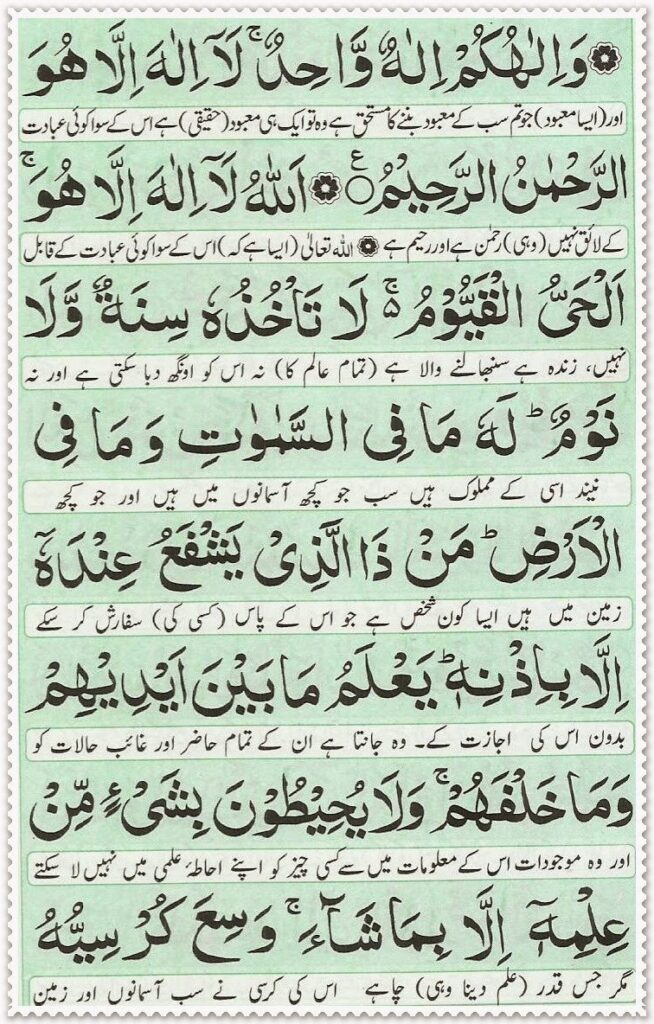 وَاِلٰهُكُمْ اِلٰهٌ وَّاحِدٌ ۚ لَآ اِلٰهَ اِلَّا هُوَ
اور (ایسا معبود) جو تم سب کے معبود بننے کا مستحق ہے وہ تو ایک ہی معبود (حقیقی) ہے اس کے سوا کوئی عبادت
الرَّحْمٰنُ الرَّحِيْمُ ○ ع اَللّٰهُ لَآ اِلٰهَ اِلَّا هُوَ ۚ
کے لائق نہیں (وہی) رحمٰن ہے اور رحیم ہے اللہ تعالیٰ (ایسا ہے کہ) اس کے سوا کوئی عبادت کے قابل
اَلْحَىُّ الْقَيُّوْمُ ۚ۵ لَا تَاْخُذُهٗ سِنَةٌ وَّلَا
نہیں، زندہ ہے سنبھالنے والا ہے (تمام عالم کا) نہ اس کو اونگھ دبا سکتی ہے اور نہ
نَوْمٌ ؕ لَهٗ مَا فِى السَّمٰوٰتِ وَمَا فِى
نیند اسی کے مملوک ہیں سب جو کچھ آسمانوں میں ہیں اور جو کچھ
الْاَرْضِ ؕ مَنْ ذَا الَّذِىْ يَشْفَعُ عِنْدَهٗٓ
زمین میں ہیں ایسا کون شخص ہے جو اس کے پاس (کسی کی) سفارش کر سکے
اِلَّا بِاِذْنِهٖ ؕ يَعْلَمُ مَا بَيْنَ اَيْدِيْهِمْ
بدون اس کی اجازت کے۔ وہ جانتا ہے ان کے تمام حاضر اور غائب حالات کو
وَمَا خَلْفَهُمْ ۚ وَلَا يُحِيْطُوْنَ بِشَىْءٍ مِّنْ
اور وہ موجودات اس کے معلومات میں سے کسی چیز کو اپنے احاطۂ علمی میں نہیں لا سکتے
عِلْمِهٖٓ اِلَّا بِمَا شَآءَ ۚ وَسِعَ كُرْسِيُّهُ
مگر جس قدر (علم دینا وہی) چاہے اس کی کرسی نے سب آسمانوں اور زمین